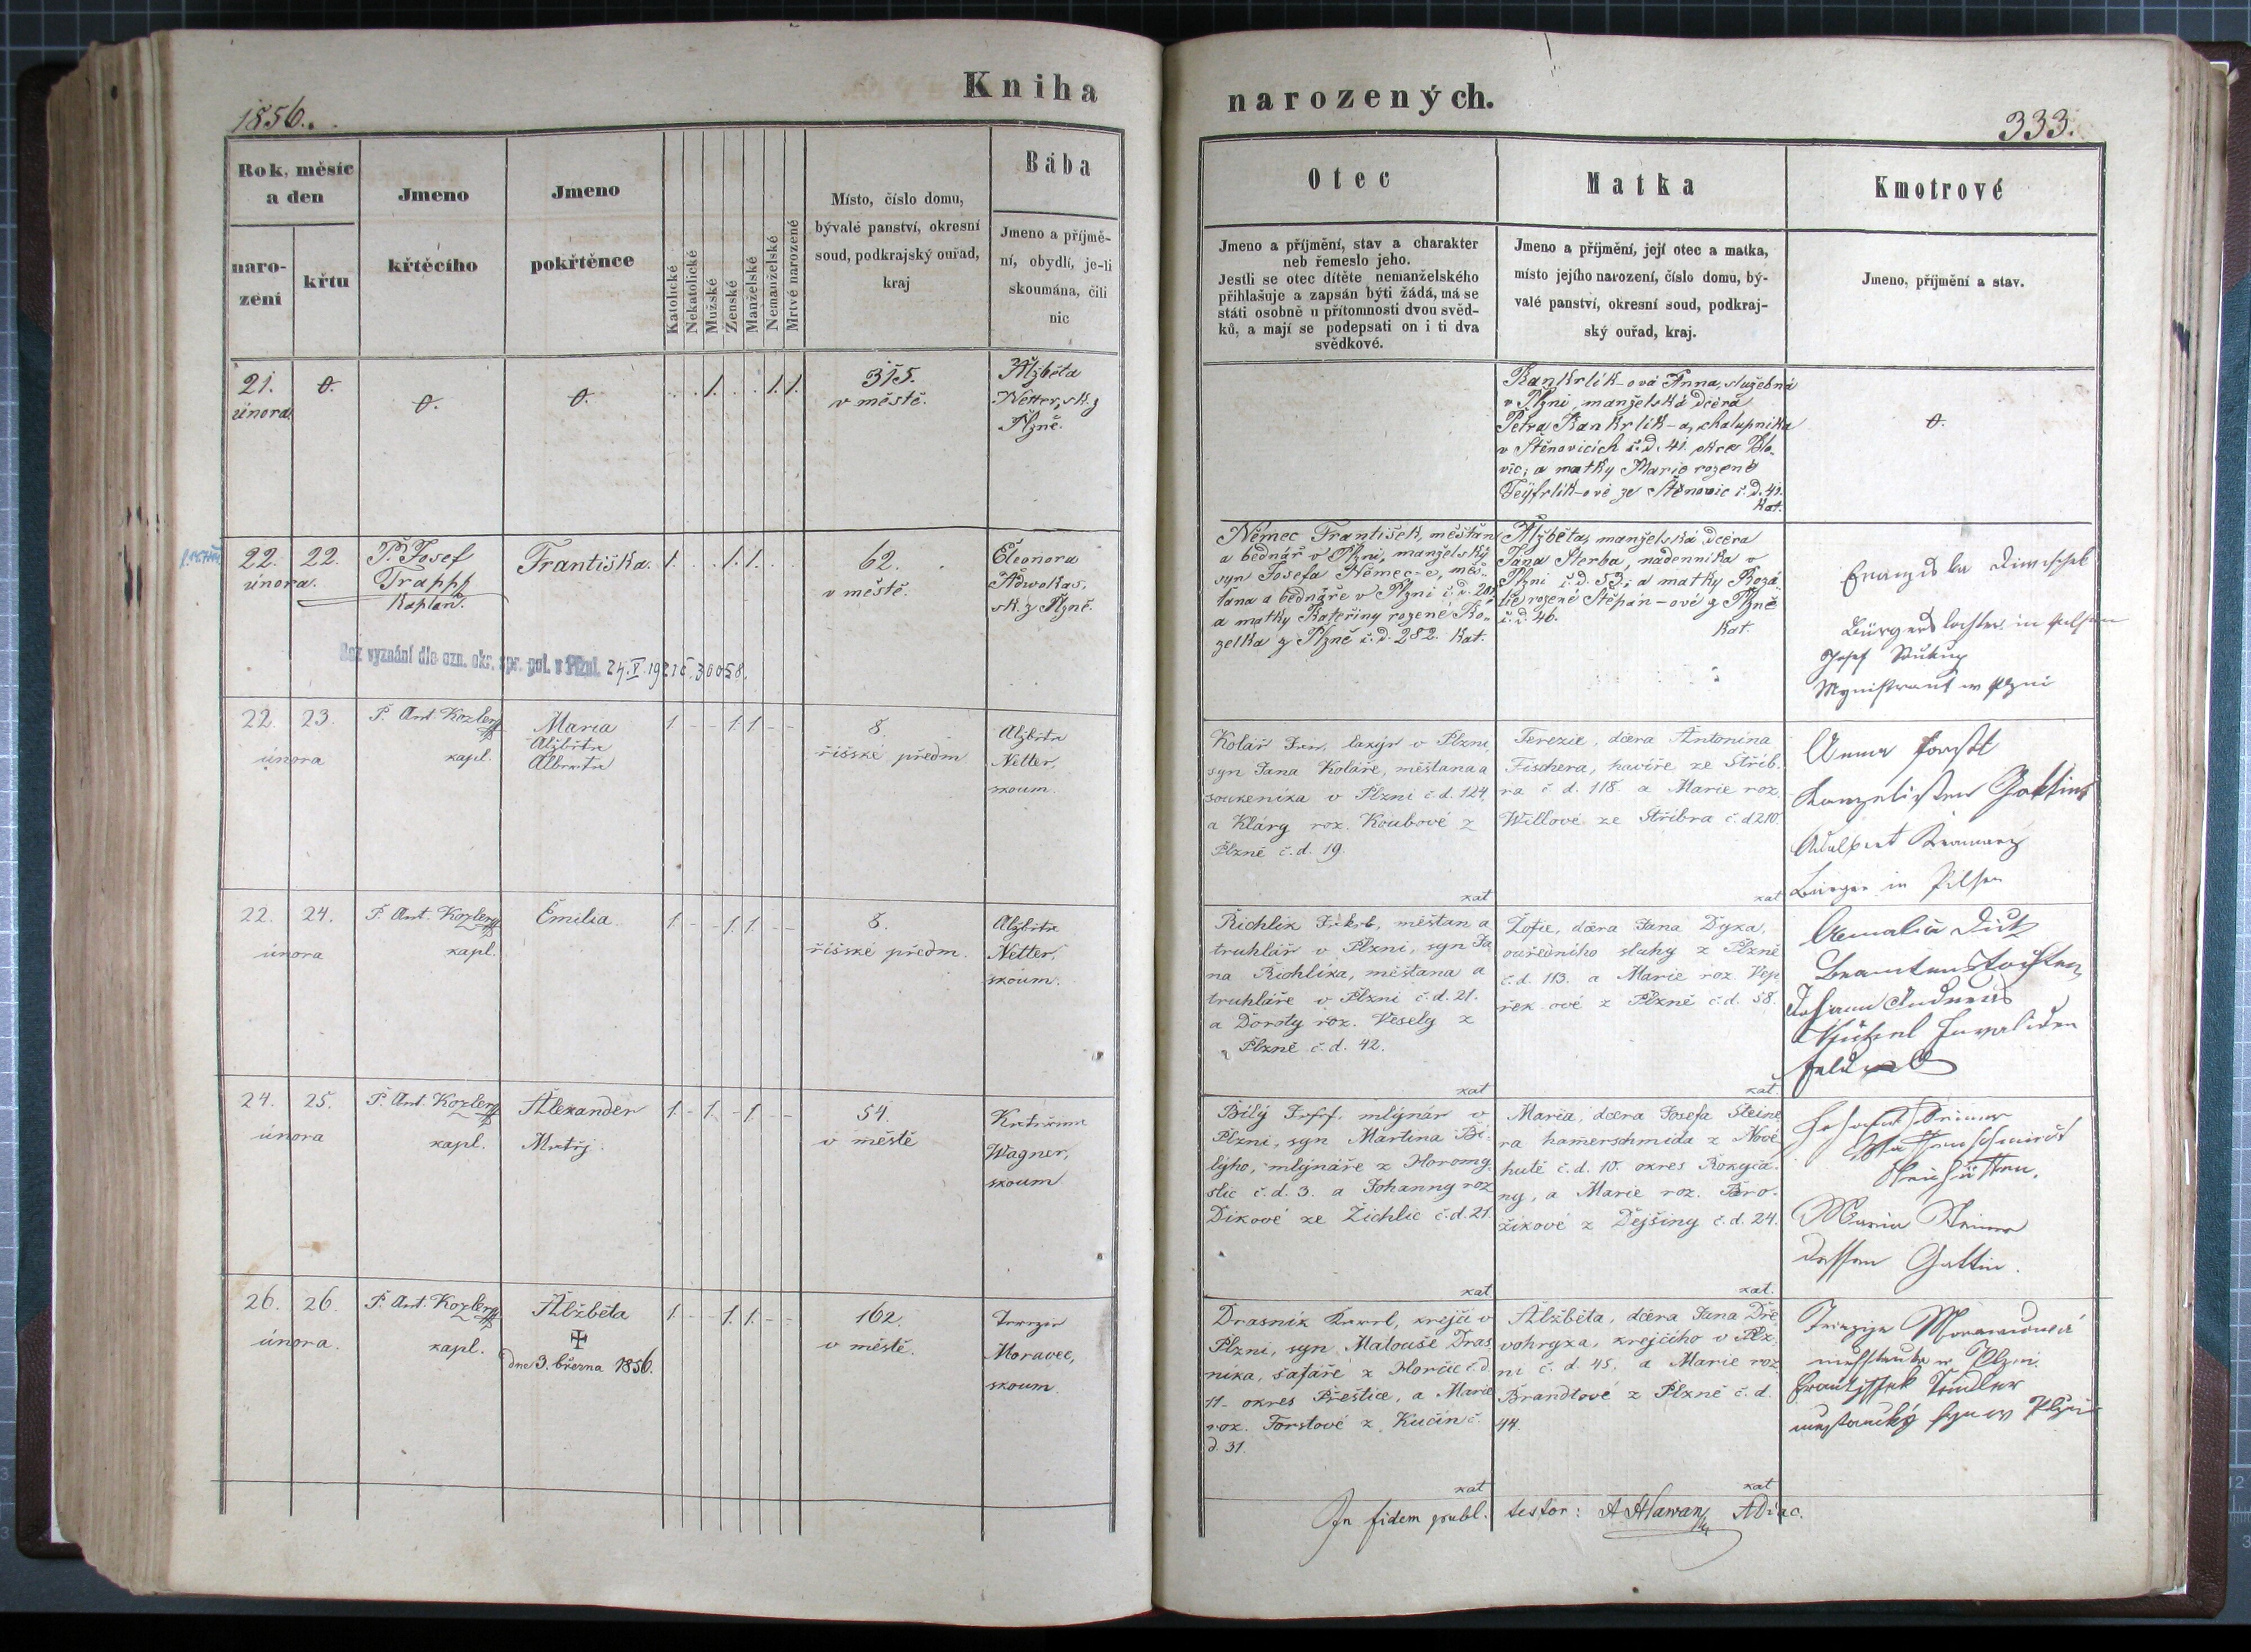 Kniha
1856.
Rok, měsíc
a den
naro-
zení
křtu
Jmeno
křtěcího
Jmeno
pokřtěnce
Katolické
Nekatolické
Mužské
Ženské
Manželské
Nemanželské
Mrtvé narozené
Místo, číslo domu,
bývalé panství, okresní
soud, podkrajský ouřad,
kraj
Bába
Jmeno a příjmě-
ní, obydlí, je-li
skoumána, čili
nic
21.
února
0.
0.
0.
. . 1. . . 1. 1.
315.
v městě.
Alžběta
Netter, sk. z
Plzně.
22. 22.
února.
P. Josef
Trappl
Kaplan.
Františka.
1. . . 1. 1. . .
62.
v městě.
Eleonora
Adwokas,
sk. z Plzně.
Bez vyznání dle ozn. okr. spr. pol. v Plzni. 24. V. 1921 č. 30058.
22. 23.
února
P. Ant. Kozler
kapl.
Maria
Alžběta
1. - - 1. 1. - -
8.
říšské předm
Alžběta
Netter,
skoum.
22. 24.
února
P. Ant. Kozler
kapl.
Emilia
1. - - 1. 1. - -
8.
říšské předm.
Alžběta
Netter,
skoum.
24. 25.
února
P. Ant. Kozler
kapl.
Alexander
Matěj.
1. - 1. - 1. - -
54.
v městě
Kateřina
Wagner,
skoum
26. 26.
února.
P. Ant. Kozler
kapl.
Alžběta
dne 3. března 1856.
1. - - 1. 1. - -
162.
v městě.
Terezie
Moravec,
skoum
narozených.
333.
Otec
Jmeno a příjmění, stav a charakter
neb řemeslo jeho.
Jestli se otec dítěte nemanželského
přihlašuje a zapsán býti žádá, má se
státi osobně u přítomnosti dvou svěd-
ků, a mají se podepsati on i ti dva
svědkové.
Matka
Jmeno a příjmění, její otec a matka,
místo jejího narození, číslo domu, bý-
valé panství, okresní soud, podkraj-
ský ouřad, kraj.
Kmotrové
Jmeno, příjmění a stav.
Kankrlík-ová Anna, služebná
v Plzni, manželská dcera
Petra Kankrlík-a, chalupníka
v Štěnovicích č. d. 41. okres Blo-
vic, a matky Marie rozené
Teyfrlík-ové ze Štěnovic č. d. 41.
Kat.
0.
Němec František, měšťan
a bednář v Plzni, manželský
syn Josefa Němec-e, měš-
ťana a bednáře v Plzni č. d. 201.
a matky Kateřiny rozené Ko-
zelka z Plzně č. d. 282. Kat.
Alžběta, manželská dcera
Jana Štěrba, nádenníka v
Plzni č. d. 53.; a matky Rozá-
lie rozené Štěpán-ové z Plzně
č. d. 46.
Kat.
Franziska
Bürgerstochter in Pilsen
Josef
Mynistrant w Plzni
Kolář Jan, lakýr v Plzni
syn Jana Koláře, měšťana a
soukeníka v Plzni č. d. 124.
a Kláry roz. Koubové z
Plzně č. d. 19.
kat
Terezie, dcera Antonína
Fischera, havíře ze Stříb-
ra č. d. 118. a Marie roz.
Willové ze Stříbra č. d. 210.
kat
Anna
Kanzelisten Gattin
Adalbert
Bürger in Pilsen
Řichlík Jakub, měšťan a
truhlář v Plzni, syn Ja
na Řichlíka, měšťana a
truhláře v Plzni č. d. 21.
a Doroty roz. Vesely z
Plzně č. d. 42.
kat
Žofie, dcera Jana Dyka,
ouředního sluhy z Plzně
č. d. 113. a Marie roz. Vep
řek-ové z Plzně č. d. 58.
kat.
Amalia
Beamtenstochter
Johann Andreas
Invaliden
Bílý Josef, mlýnář v
Plzni, syn Martina Bí-
lýho, mlýnáře z Horomy-
slic č. d. 3. a Johanny roz
Dikové ze Žichlic č. d. 21.
kat
Maria, dcera Josefa Steine
ra hamerschmida z Nové
hutě č. d. 10. okres Rokyca-
ny, a Marie roz. Bro-
žikové z Dejšiny č. d. 24.
kat.
Maria Steiner
dessen Gattin.
Drasník Karel, krejčí v
Plzni, syn Matouše Dras
níka, šafáře z Horčic č. d
11. okres Přeštice, a Marie
roz. Forstové z Kucín č.
d. 31.
kat
Alžběta, dcera Jana Dře
vohryza, krejčího v Plz-
ni č. d. 45, a Marie roz
Brandtové z Plzně č. d.
44.
kat
w Plzni.
In fidem publ. testor: A. Hlawan ADiac.